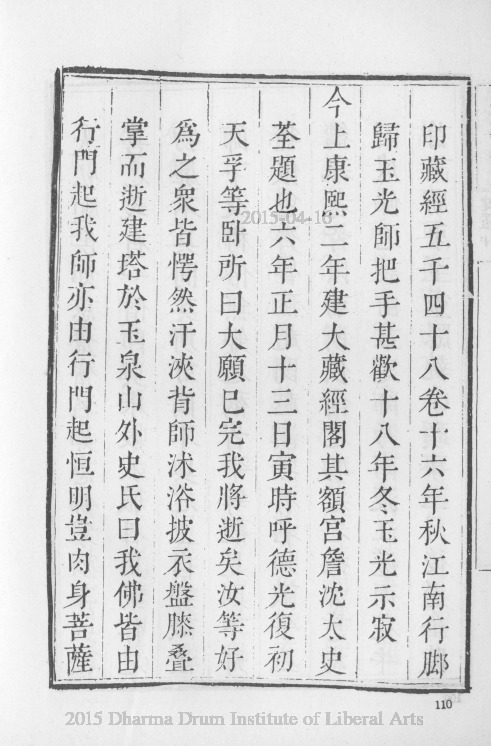 印藏經五千四十八卷十六年秋江南行脚
歸玉光師把手甚歡十八年冬玉光示寂
今上康熙二年建大藏經閣其額宮詹沈太史
荃題也六年正月十三日寅時呼德光復初
天孚等卧所曰大願已完我將逝矣汝等好
爲之衆皆愕然汗浹背師沐浴披衣盤膝叠
掌而逝建塔於玉泉山外史氏曰我佛皆由
行門起我師亦由行門起恒明豈肉身菩薩
2015-04-16
110
2015 Dharma Drum Institute of Liberal Arts